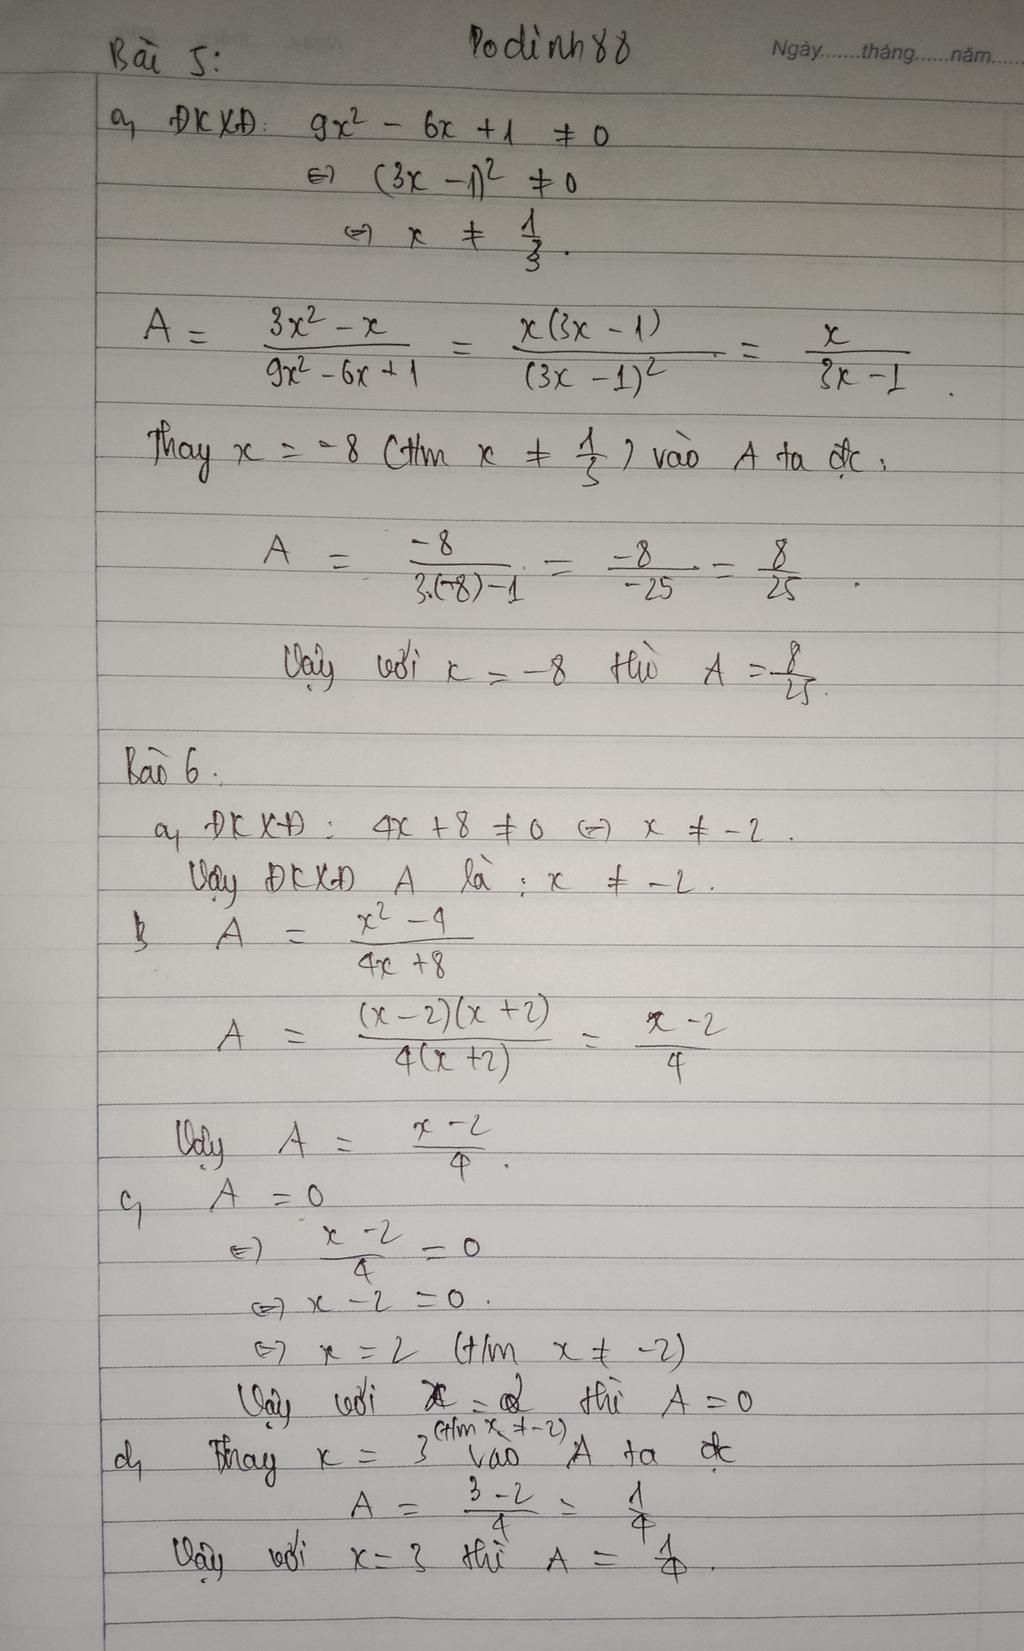 Dodinh88
Ngày.......tháng......năm......
Bài 5:
a, ĐKXĐ: 9x² - 6x + 1 ≠ 0
⇔ (3x - 1)² ≠ 0
⇔ x ≠ 1/3.
A = (3x² - x)/(9x² - 6x + 1) = x(3x - 1)/(3x - 1)² = x/(3x - 1).
Thay x = -8 (t/m x ≠ 1/3) vào A ta đc:
A = -8/(3.(-8) - 1) = -8/-25 = 8/25.
Vậy với x = -8 thì A = 8/25.
Bài 6.
a, ĐKXĐ: 4x + 8 ≠ 0 ⇔ x ≠ -2.
Vậy ĐKXĐ A là: x ≠ -2.
b A = (x² - 4)/(4x + 8)
A = (x - 2)(x + 2)/4(x + 2) = (x - 2)/4
Vậy A = (x - 2)/4.
c, A = 0
⇔ (x - 2)/4 = 0
⇔ x - 2 = 0.
⇔ x = 2 (t/m x ≠ -2)
Vậy với x = 2 thì A = 0
d, Thay x = 3 (t/m x ≠ -2) vào A ta đc
A = (3 - 2)/4 = 1/4
Vậy với x = 3 thì A = 1/4.